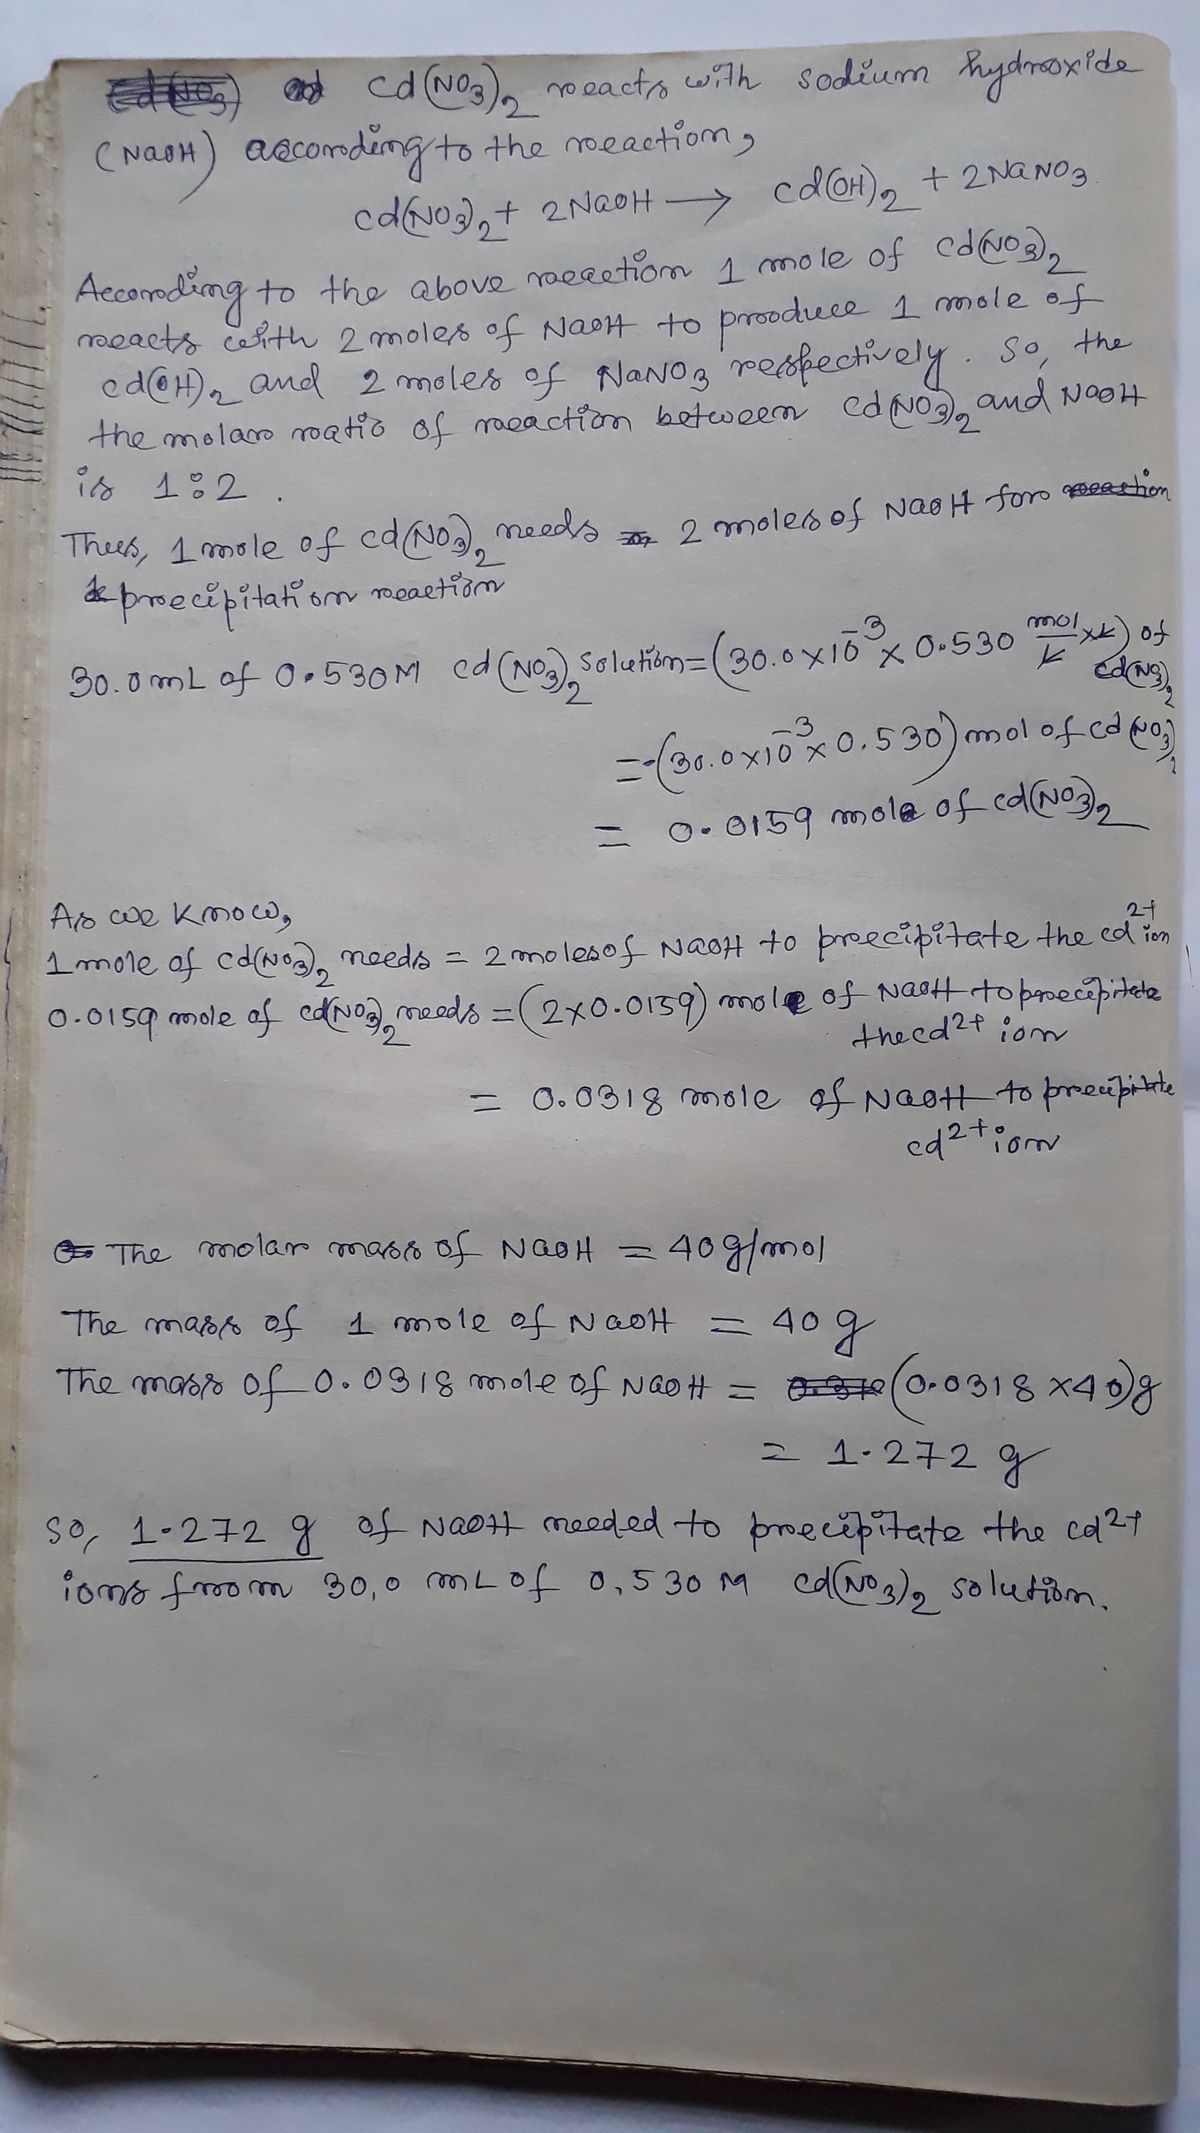 Cd(NO3)2 reacts with sodium hydroxide
(NaOH) according to the reaction,
Cd(NO3)2 + 2NaOH → Cd(OH)2 + 2NaNO3
According to the above reaction 1 mole of Cd(NO3)2
reacts with 2 moles of NaOH to produce 1 mole of
Cd(OH)2 and 2 moles of NaNO3 respectively. So, the
the molar ratio of reaction between Cd(NO3)2 and NaOH
is 1:2.
Thus, 1 mole of Cd(NO3)2 needs 2 moles of NaOH for reaction
precipitation reaction
30.0 mL of 0.530M Cd(NO3)2 solution = (30.0×10^-3 × 0.530 mol/L × L) of Cd(NO3)2
= (30.0×10^-3 × 0.530) mol of Cd(NO3)2
= 0.0159 mole of Cd(NO3)2
As we know,
1 mole of Cd(NO3)2 needs = 2 moles of NaOH to precipitate the Cd2+ ion
0.0159 mole of Cd(NO3)2 needs = (2×0.0159) mole of NaOH to precipitate
the Cd2+ ion
= 0.0318 mole of NaOH to precipitate
Cd2+ ion
The molar mass of NaOH = 40g/mol
The mass of 1 mole of NaOH = 40 g
The mass of 0.0318 mole of NaOH = (0.0318 × 40)g
= 1.272 g
So, 1.272 g of NaOH needed to precipitate the Cd2+
ions from 30.0 mL of 0.530 M Cd(NO3)2 solution.